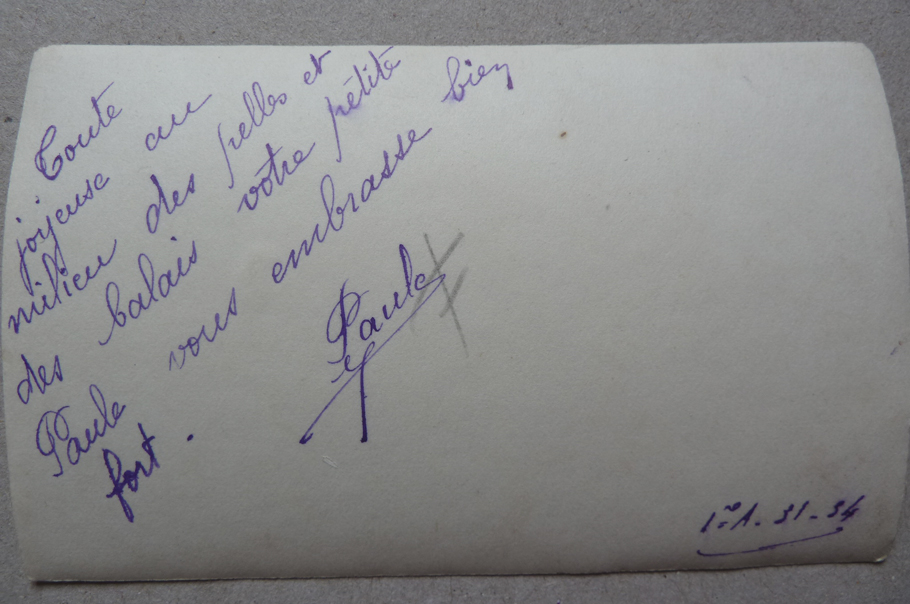 Toute
joyeuse au
milieu des pelles et
des balais votre pétite
Paule vous embrasse bien
fort.
Paule
1re A. 31-34